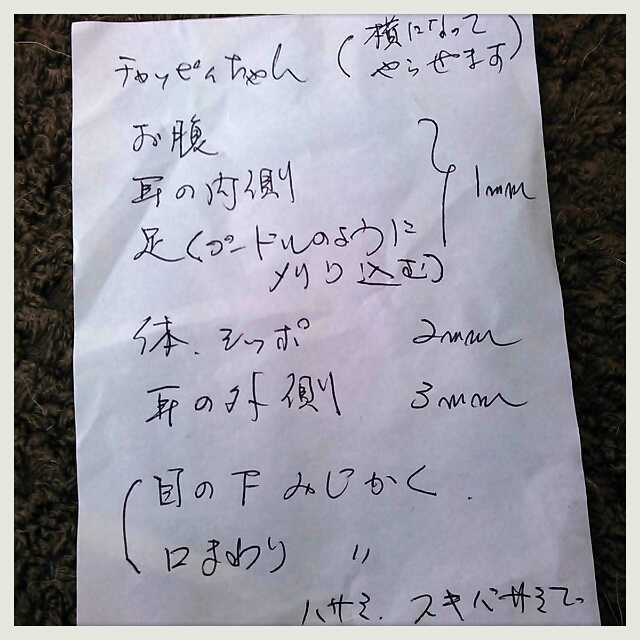 チャッピィちゃん (横になって
やらせます)
お腹
耳の内側
足(プードルのように
メリり込む)
1mm
体、シッポ 2mm
耳の外側 3mm
目の下 みじかく.
口まわり 〃
ハサミ、スキバサミで